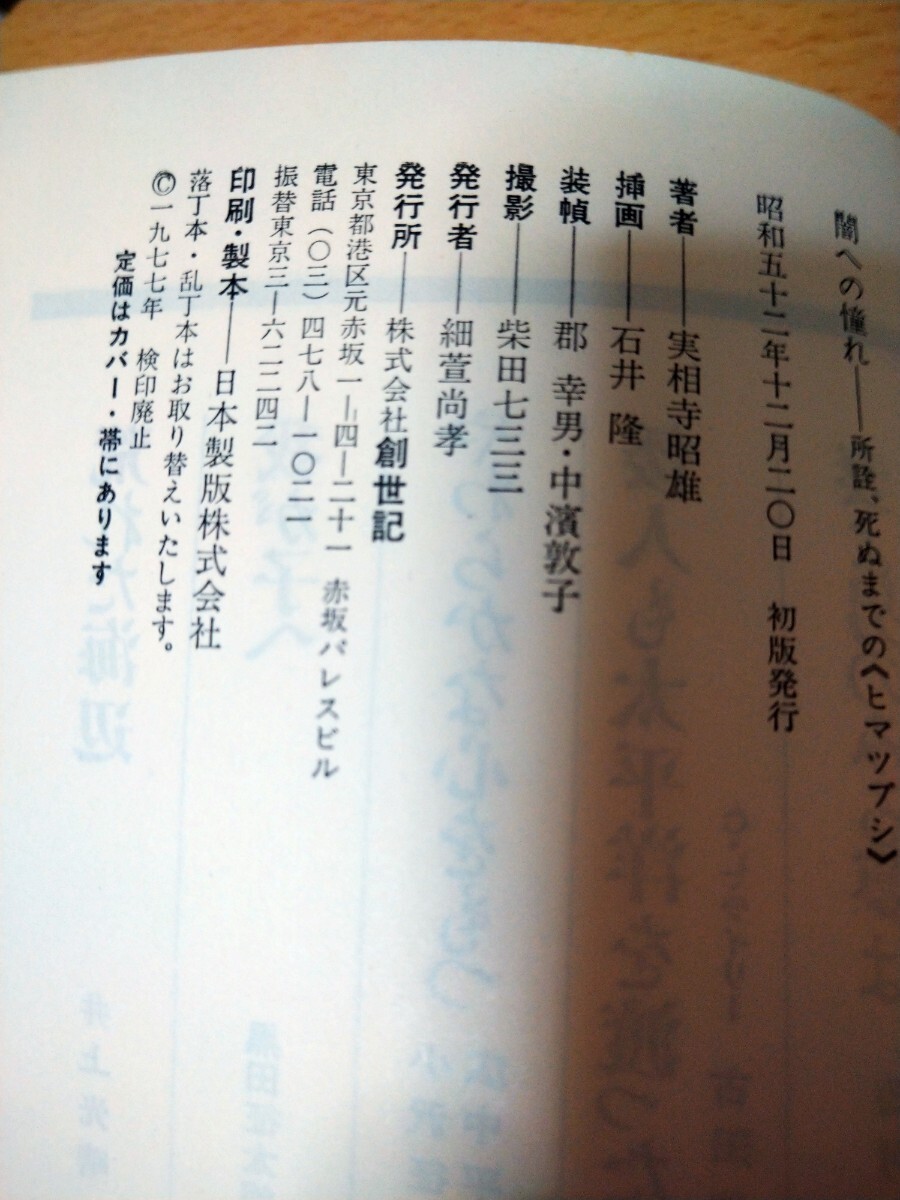 闇への憧れ——所詮、死ぬまでの《ヒマツブシ》
昭和五十二年十二月二〇日　初版発行
著者——実相寺昭雄
挿画——石井 隆
装幀——郡 幸男・中濱敦子
撮影——柴田七三三
発行者——細萱尚孝
発行所——株式会社創世記
東京都港区元赤坂一—四—二十一 赤坂パレスビル
電話（〇三）四七八—一〇二一
振替東京三—六二二四二
印刷・製本——日本製版株式会社
落丁本・乱丁本はお取り替えいたします。
©一九七七年　検印廃止
定価はカバー・帯にあります